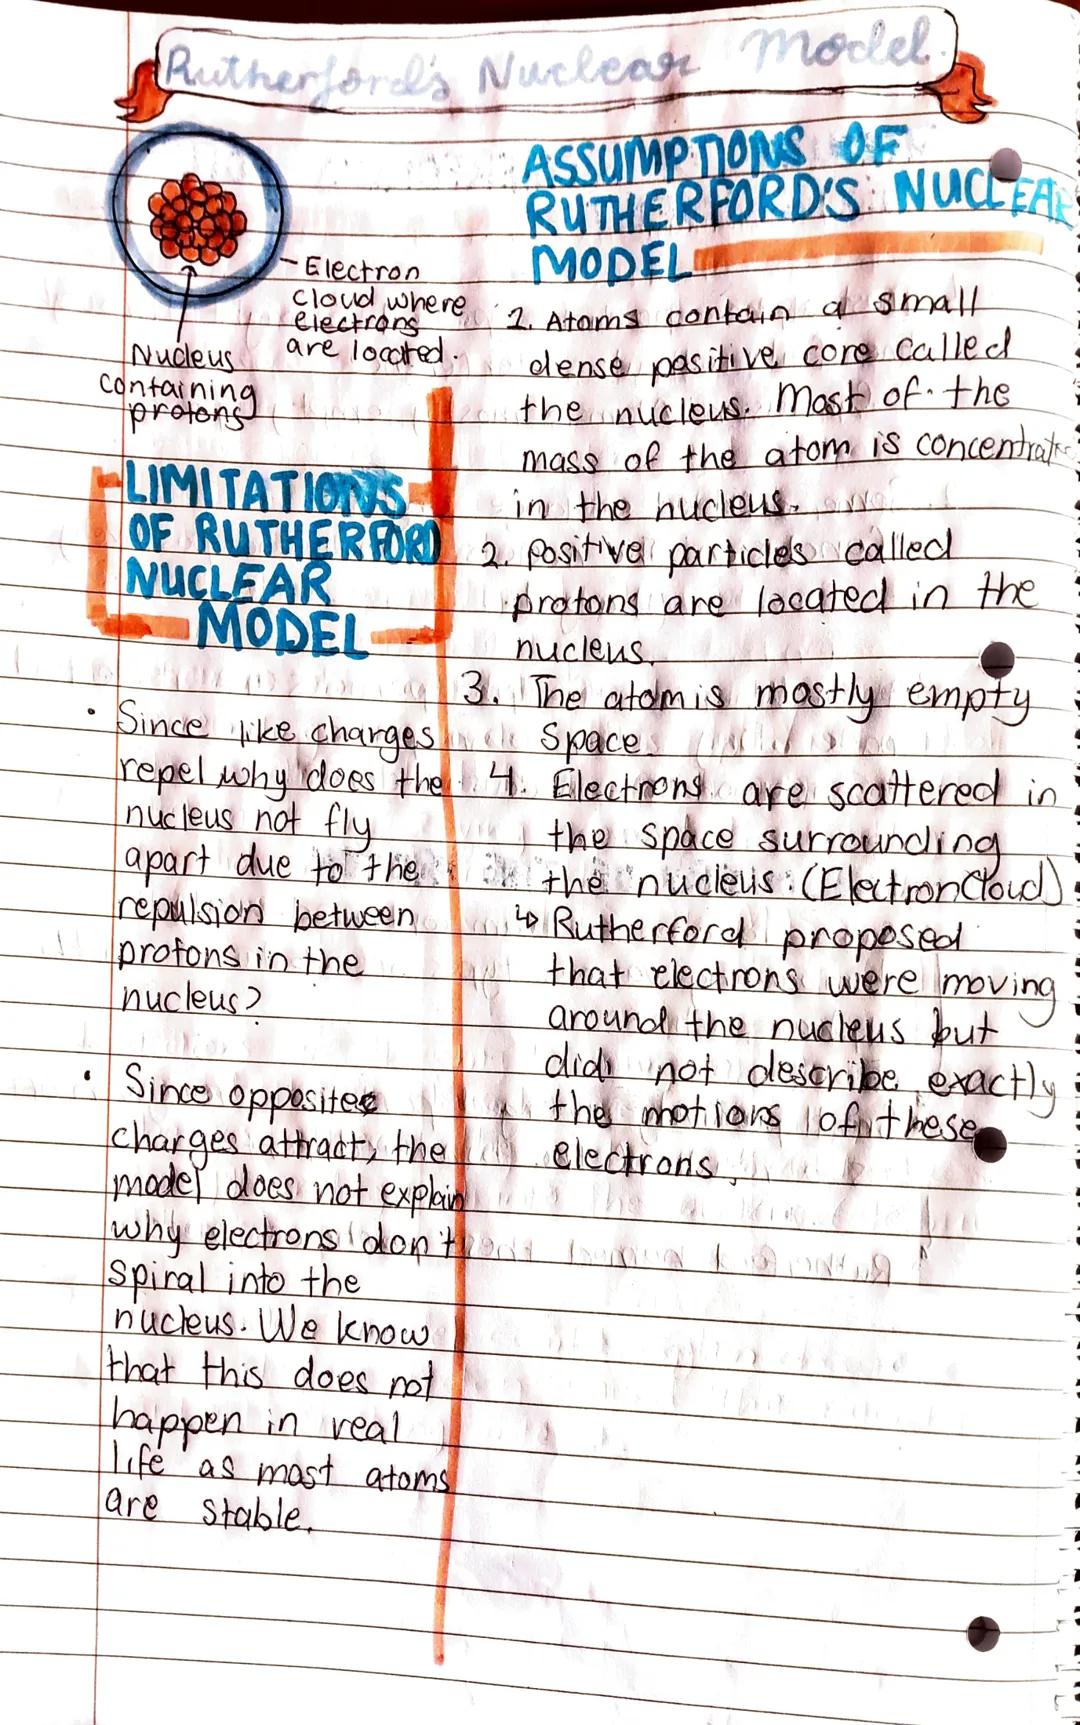 Rutherford's Nuclear Model.
Electron
cloud where
electrons
are located.
Nucleus
containing
protons
LIMITATIONS
OF RUTHERFORD
NUCLEAR
MODEL
• Since like charges
repel why does the
nucleus not fly
apart due to the
repulsion between
protons in the
nucleus?
• Since opposites
charges attract, the
model does not explain
why electrons don't
spiral into the
nucleus. We know
that this does not
happen in real
life as most atoms
are stable.
ASSUMPTIONS OF
RUTHERFORD'S NUCLEAR
MODEL
1. Atoms contain a small
dense positive core called
the nucleus. Most of the
mass of the atom is concentrate
in the nucleus.
2. positive particles called
protons are located in the
nucleus.
3. The atom is mostly empty
Space.
4. Electrons are scattered in
the space surrounding
the nucleus. (Electron Cloud)
↳ Rutherford proposed
that electrons were moving
around the nucleus but
did not describe exactly
the motions of these
electrons.